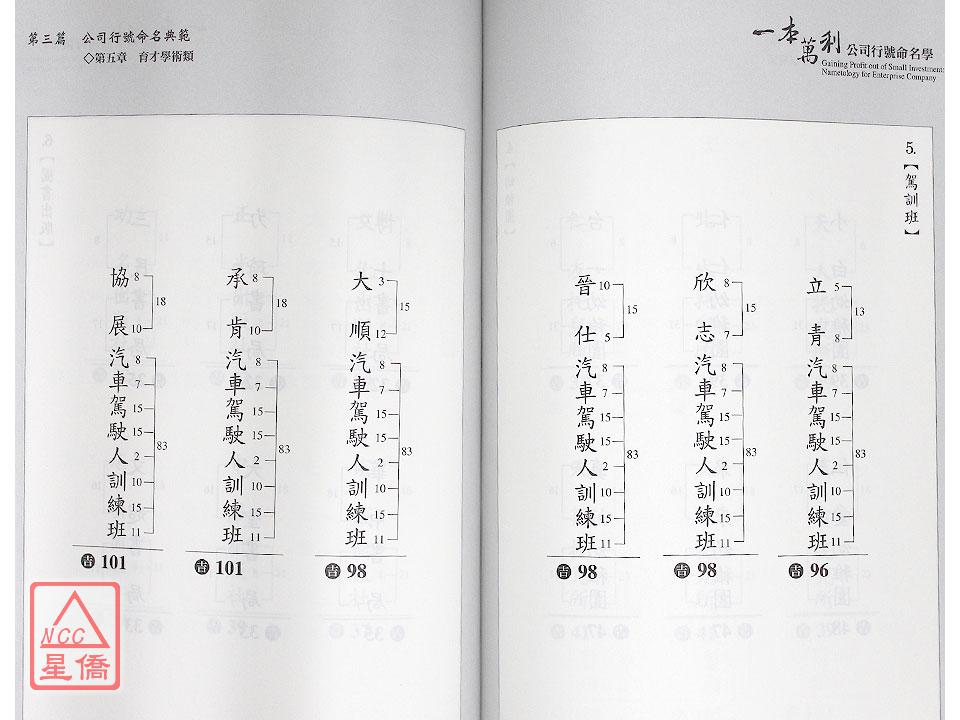 一本萬利 公司行號命名學
Gaining Profit out of Small Investment:
Nametology for Enterprise Company
5.【駕訓班】
立 5 青 8 13
汽 8 車 7 駕 15 駛 15 人 2 訓 10 練 15 班 11 83
吉 96
欣 8 志 7 15
汽 8 車 7 駕 15 駛 15 人 2 訓 10 練 15 班 11 83
吉 98
晉 10 仕 5 15
汽 8 車 7 駕 15 駛 15 人 2 訓 10 練 15 班 11 83
吉 98
第三篇 公司行號命名典範
◇第五章 育才學術類
大 3 順 12 15
汽 8 車 7 駕 15 駛 15 人 2 訓 10 練 15 班 11 83
吉 98
承 8 肯 10 18
汽 8 車 7 駕 15 駛 15 人 2 訓 10 練 15 班 11 83
吉 101
協 8 展 10 18
汽 8 車 7 駕 15 駛 15 人 2 訓 10 練 15 班 11 83
吉 101
NCC
星僑